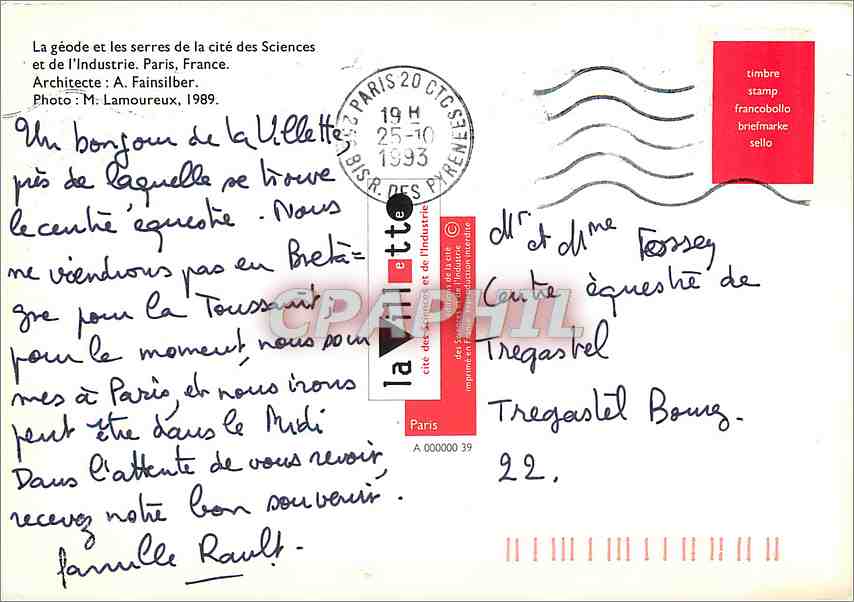 La géode et les serres de la cité des Sciences
et de l'Industrie. Paris, France.
Architecte : A. Fainsilber.
Photo : M. Lamoureux, 1989.
Un bonjour de la Villette
près de laquelle se trouve
le centre équestre. Nous
ne viendrons pas en Breta=
gne pour la Toussaint,
pour le moment, nous som
mes à Paris, et nous irons
peut être dans le Midi
Dans l'attente de vous revoir,
recevez notre bon souvenir.
famille Rault.
PARIS 20 CTC
19 H
25-10
1993
BIS R. DES PYRENEES
timbre
stamp
francobollo
briefmarke
sello
la Villette
cité des Sciences et de l'Industrie
©
des Sciences et de l'Industrie
imprimé en France reproduction interdite
Paris
A 000000 39
CPAPHIL
Mr. et Mme
Centre équestre de
Tregastel
Tregastel Bourg.
22.